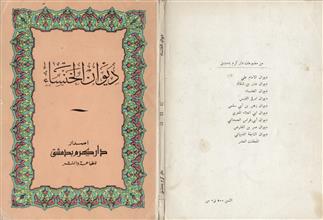 ديوان الخنساء
اصدار
دار كرم بدمشق
للطباعة والنشر
ديوان الخنساء
دار كرم بدمشق
من مطبوعات دار كرم بدمشق
ديوان الامام علي
ديوان عنترة بن شداد
ديوان الخنساء
ديوان امرئ القيس
ديوان زهير بن أبي سلمى
ديوان أبي العلاء المعري
ديوان أبي فراس الحمداني
ديوان عمر بن الفارض
ديوان النابغة الذبياني
المعلقات العشر